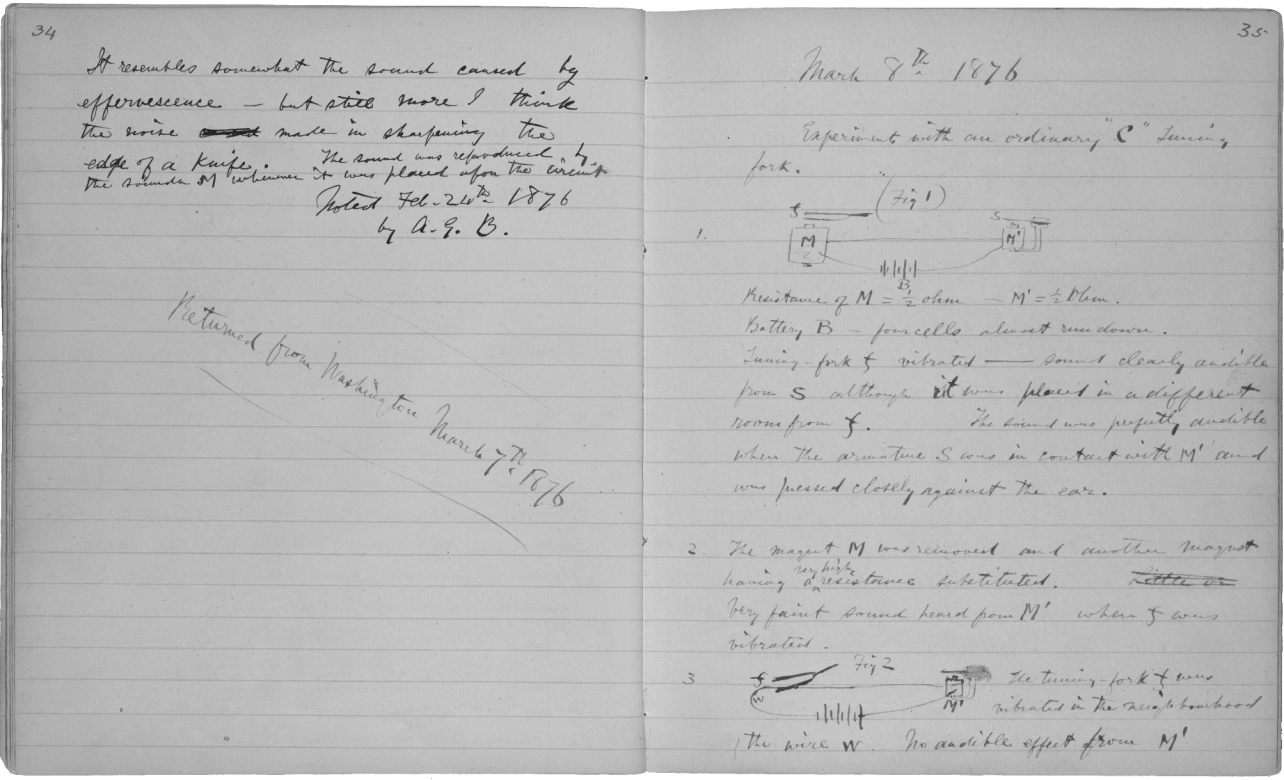 34
It resembles somewhat the sound caused by
effervescence — but still more I think
the noise made in sharpening the
edge of a knife. The sound was reproduced by
the sounder M whenever it was placed upon the circuit
Noted Feb. 24th 1876
by A. G. B.
Returned from Washington March 7th 1876
35
March 8th 1876
Experiment with an ordinary "C" Tuning
fork.
(Fig 1)
S
1.
M
2
M'
B
Resistance of M = ½ ohm — M' = ½ Ohm.
Battery B — four cells almost rundown.
Tuning-fork f vibrated — sound clearly audible
from S although it was placed in a different
room from f. The sound was perfectly audible
when the armature S was in contact with M' and
was pressed closely against the ear.
2. The magnet M was removed and another magnet
having a very high resistance substituted. Little or
Very faint sound heard from M' when f was
vibrated.
3 Fig 2
f
W
M'
The tuning-fork f was
vibrated in the neighbourhood
the wire W. No audible effect from M'